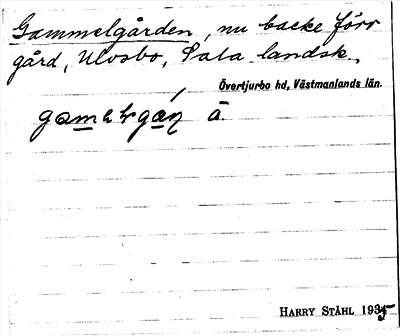 Gammelgården, nu backe förr
gård, Ulvsbo, Sala landsk.,
Övertjurbo hd, Västmanlands län.
ā.
HARRY STÅHL 1935